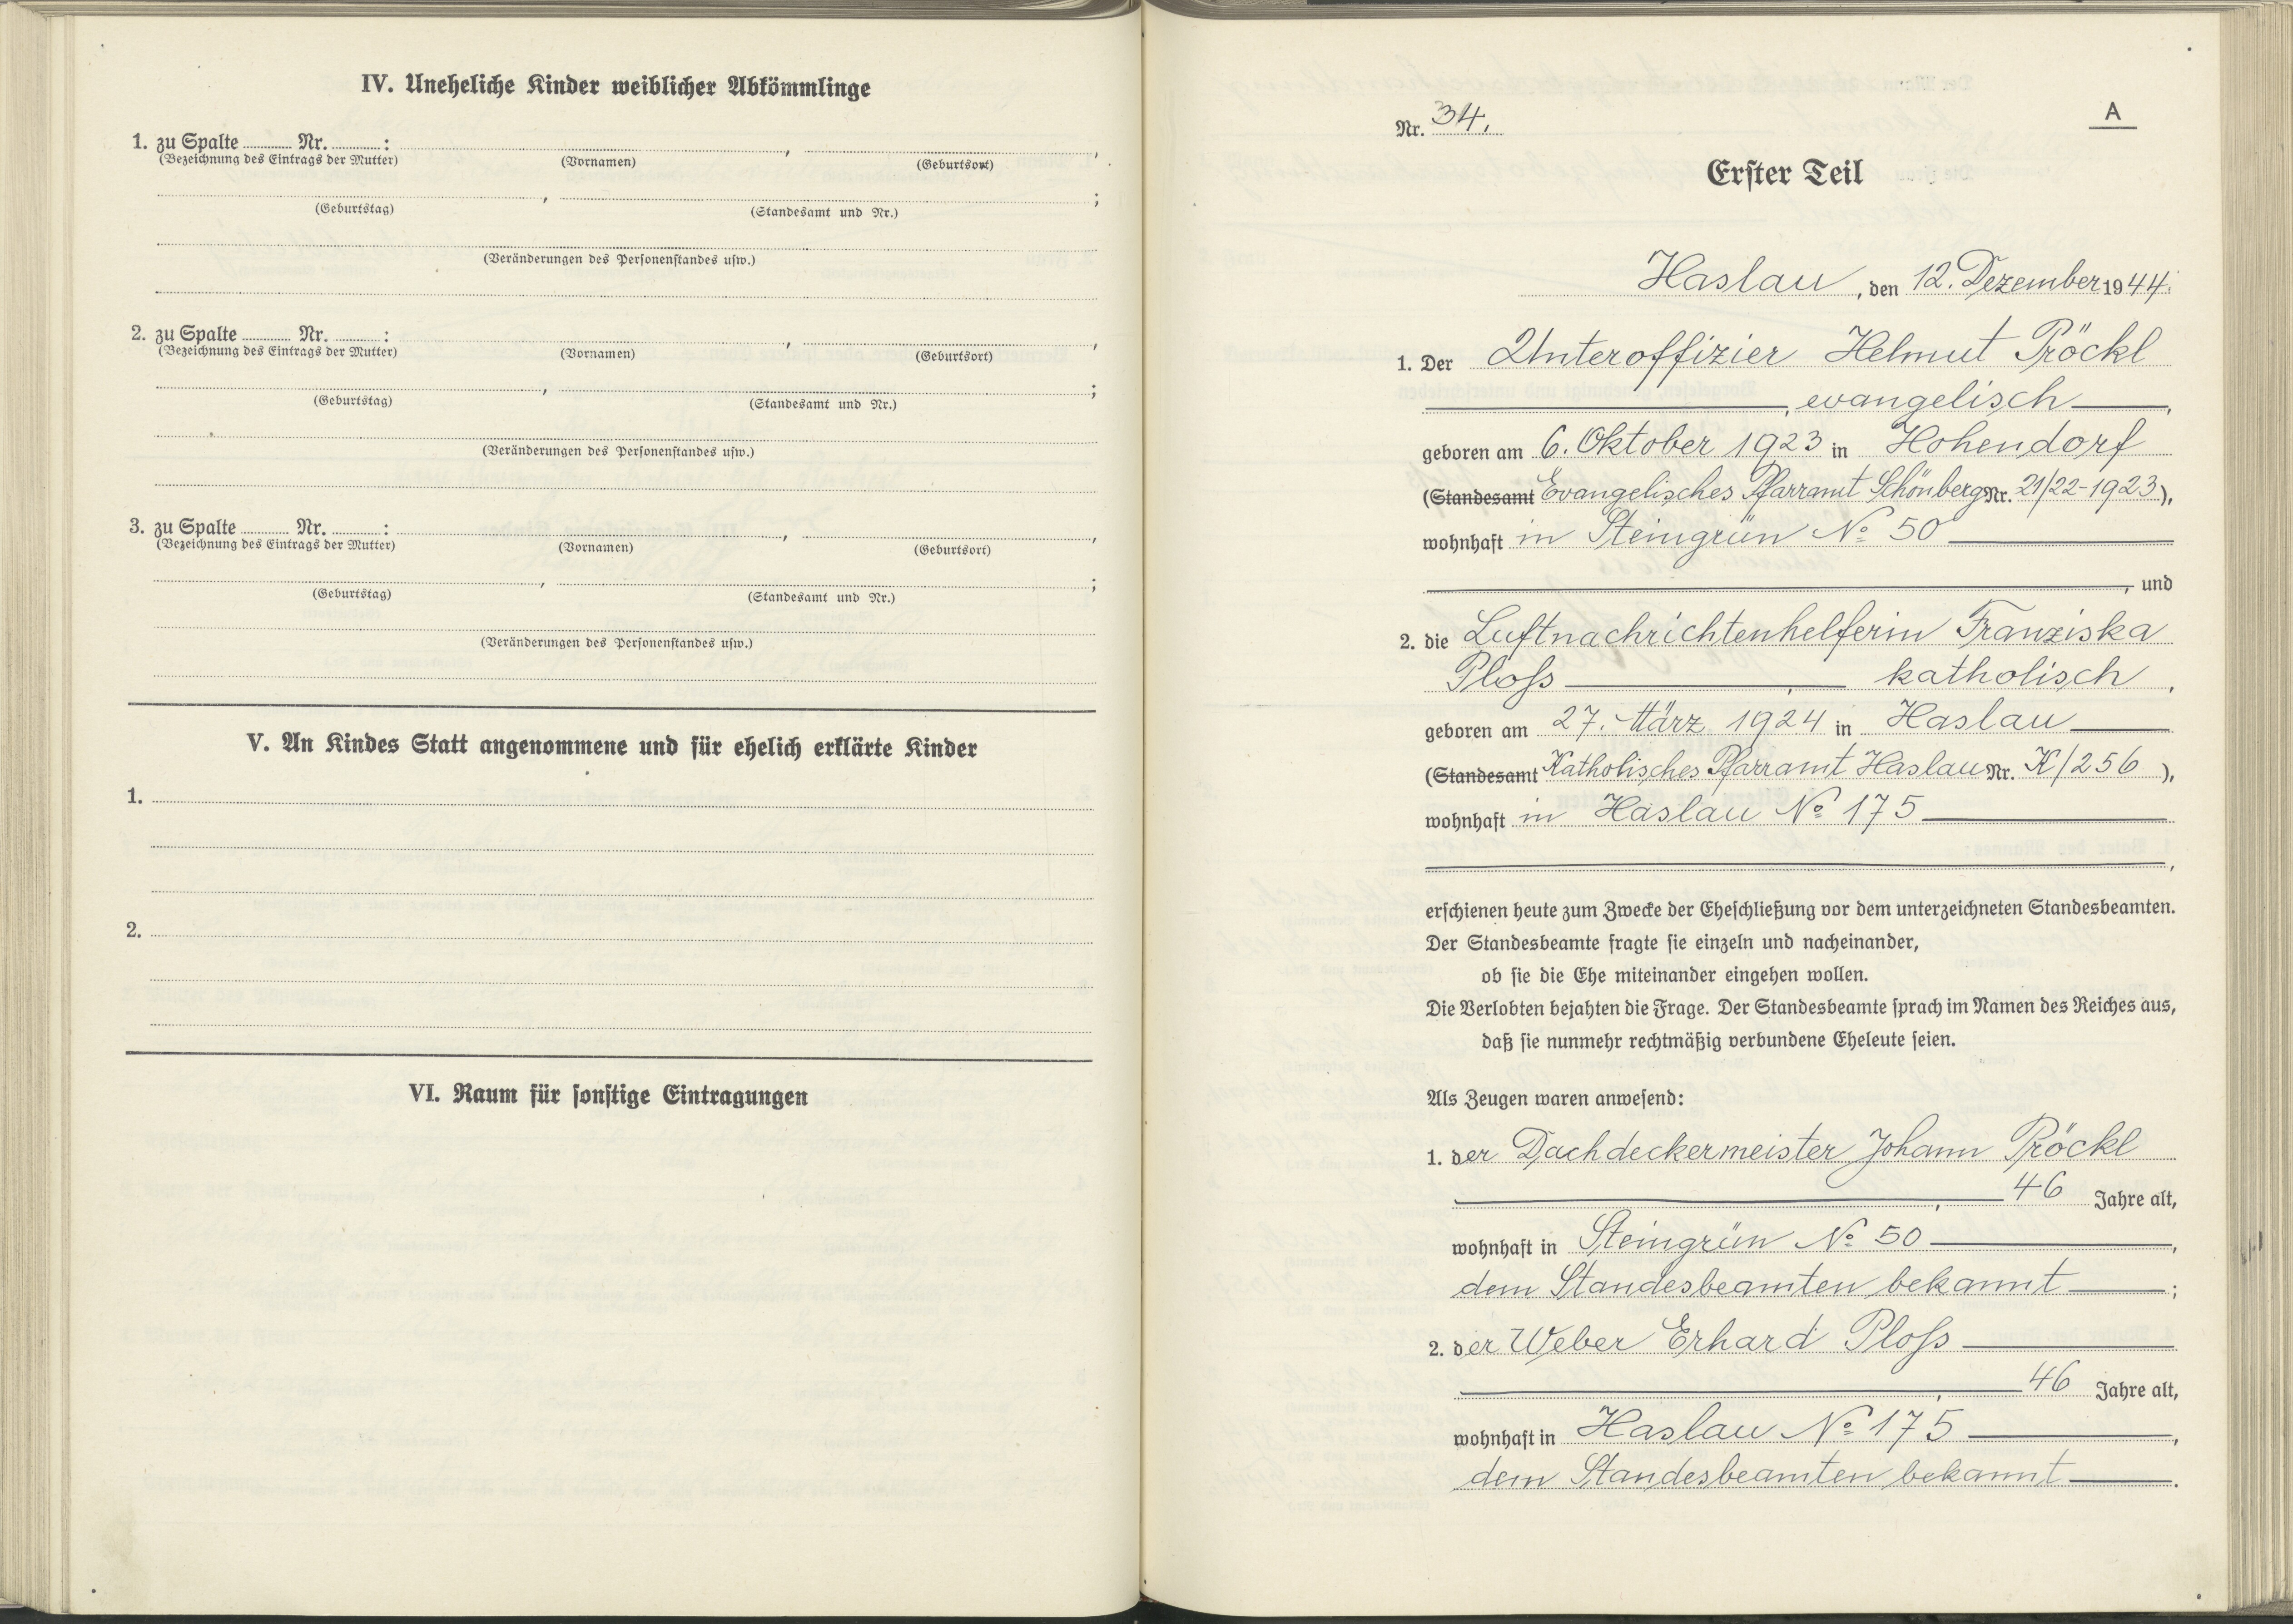 IV. Uneheliche Kinder weiblicher Abkömmlinge
1. zu Spalte ........ Nr. ........ : ........ , ........ ,
(Bezeichnung des Eintrags der Mutter) (Vornamen) (Geburtsort)
........ , ........ ;
(Geburtstag) (Standesamt und Nr.)
(Veränderungen des Personenstandes usw.)
2. zu Spalte ........ Nr. ........ : ........ , ........ ,
(Bezeichnung des Eintrags der Mutter) (Vornamen) (Geburtsort)
........ , ........ ;
(Geburtstag) (Standesamt und Nr.)
(Veränderungen des Personenstandes usw.)
3. zu Spalte ........ Nr. ........ : ........ , ........ ,
(Bezeichnung des Eintrags der Mutter) (Vornamen) (Geburtsort)
........ , ........ ;
(Geburtstag) (Standesamt und Nr.)
(Veränderungen des Personenstandes usw.)
V. An Kindes Statt angenommene und für ehelich erklärte Kinder
1.
2.
VI. Raum für sonstige Eintragungen
A
Nr. 34.
Erster Teil
Haslau, den 12. Dezember 1944.
1. Der Unteroffizier Helmut Pröckl
, evangelisch ,
geboren am 6. Oktober 1923 in Hohendorf
(Standesamt Evangelisches Pfarramt Schönberg Nr. 21/22-1923),
wohnhaft in Steingrün No 50
, und
2. die Luftnachrichtenhelferin Franziska
Ploß , katholisch ,
geboren am 27. März 1924 in Haslau
(Standesamt Katholisches Pfarramt Haslau Nr. K/256 ),
wohnhaft in Haslau No 175
,
erschienen heute zum Zwecke der Eheschließung vor dem unterzeichneten Standesbeamten.
Der Standesbeamte fragte sie einzeln und nacheinander,
ob sie die Ehe miteinander eingehen wollen.
Die Verlobten bejahten die Frage. Der Standesbeamte sprach im Namen des Reiches aus,
daß sie nunmehr rechtmäßig verbundene Eheleute seien.
Als Zeugen waren anwesend:
1. der Dachdeckermeister Johann Pröckl
, 46 Jahre alt,
wohnhaft in Steingrün No 50 ,
dem Standesbeamten bekannt ;
2. der Weber Erhard Ploß
, 46 Jahre alt,
wohnhaft in Haslau No 175 ,
dem Standesbeamten bekannt .